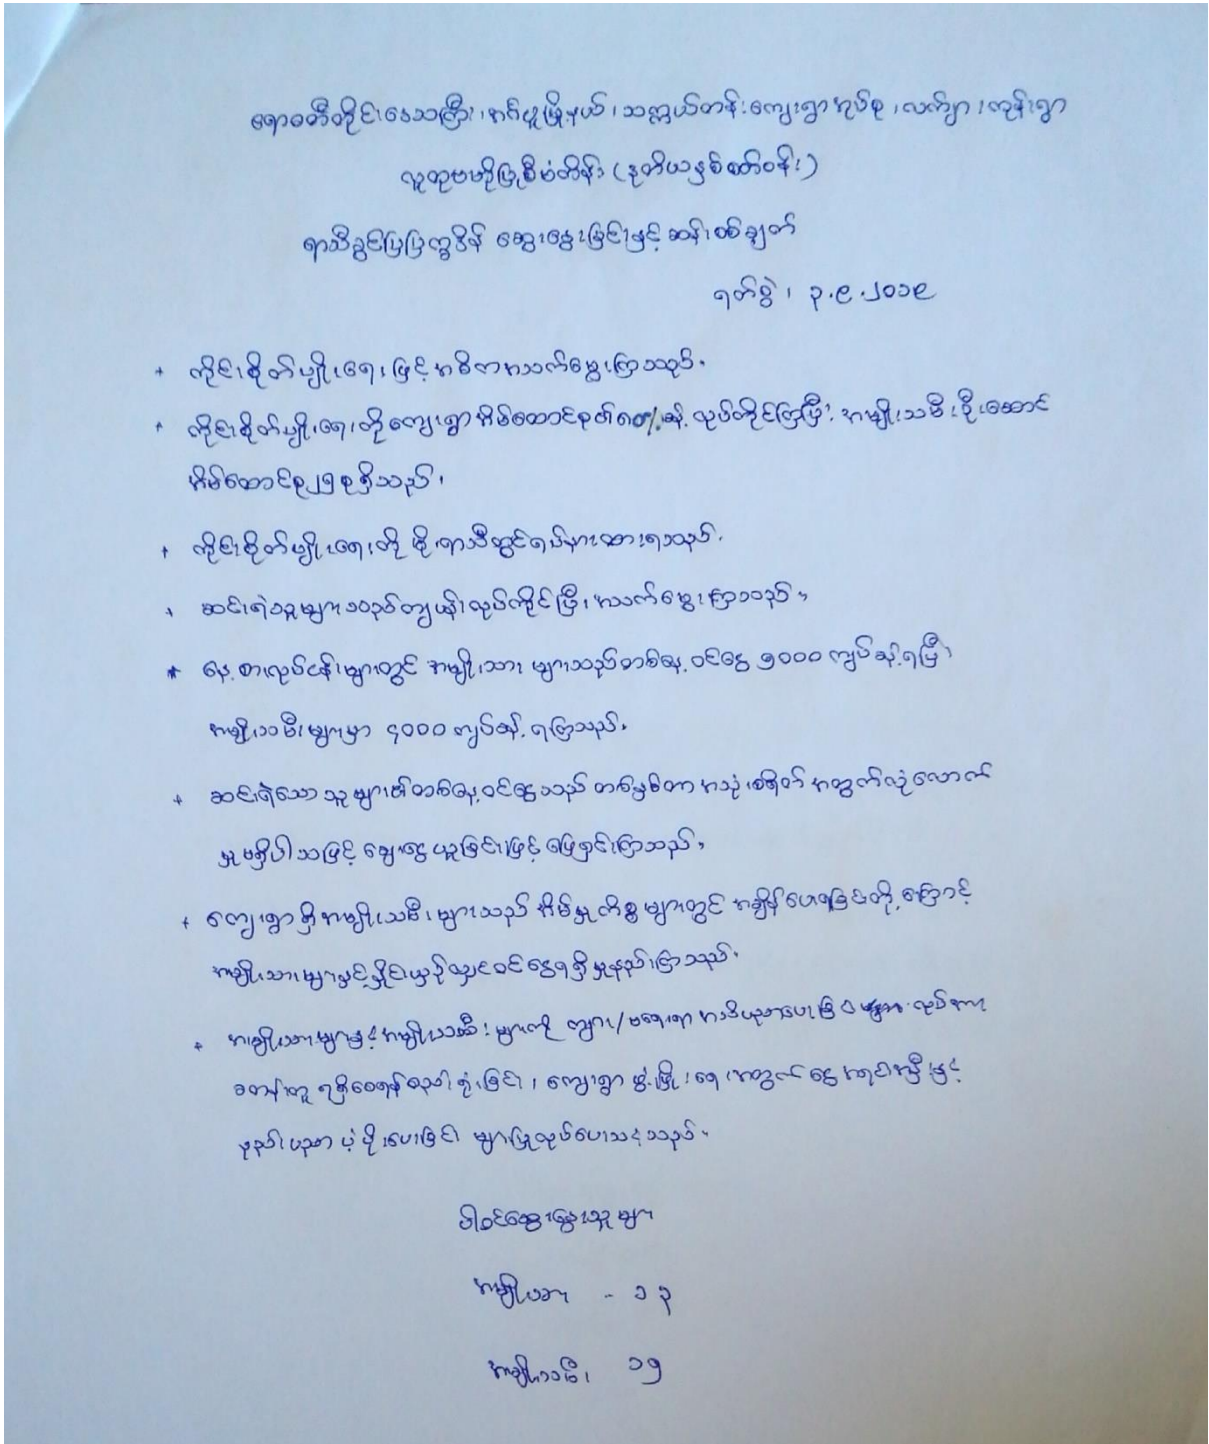 ဧရာဝတီတိုင်းဒေသကြီး၊ အင်္ဂပူမြို့နယ်၊ သက္ကယ်တန်းကျေးရွာအုပ်စု၊ လက်ျားကုန်းရွာ
လူထုဗဟိုပြုစီမံကိန်း (ဒုတိယနှစ်စက်ဝန်း)
ရာသီခွင်ပြပြက္ခဒိန် ဆွေးနွေးခြင်းနှင့် ဆန်းစစ်ချက်
ရက်စွဲ၊ ၃.၉.၂၀၁၉
+ ကိုင်းစိုက်ပျိုးရေးဖြင့် အဓိကအသက်မွေးကြသည်။
+ ကိုင်းစိုက်ပျိုးရေးကို ကျေးရွာအိမ်ထောင်စု၏ ၈၀% ခန့် လုပ်ကိုင်ကြပြီး အမျိုးသမီးဦးဆောင်
အိမ်ထောင်စု ၂၅ စုရှိသည်။
+ ကိုင်းစိုက်ပျိုးရေးကို မိုးရာသီတွင် ရပ်နားထားရသည်။
+ ဆင်းရဲသူများသည် ကျပန်းလုပ်ကိုင်ပြီး အသက်မွေးကြသည်။
* နေ့စားလုပ်ငန်းများတွင် အမျိုးသားများသည် တစ်နေ့ဝင်ငွေ ၅၀၀၀ ကျပ်ခန့်ရပြီး
အမျိုးသမီးများမှာ ၄၀၀၀ ကျပ်ခန့် ရကြသည်။
+ ဆင်းရဲသော သူများ၏ တစ်နေ့ဝင်ငွေသည် တစ်နှစ်တာ အသုံးစရိတ် အတွက် လုံလောက်
မှုမရှိပါသဖြင့် ချေးငွေယူခြင်းဖြင့် ဖြေရှင်းကြသည်။
+ ကျေးရွာရှိ အမျိုးသမီးများသည် အိမ်မှုကိစ္စများတွင် အချိန်ပေးရခြင်းတို့ကြောင့်
အမျိုးသားများနှင့် နှိုင်းယှဉ်လျှင် ဝင်ငွေရရှိမှုနည်းကြသည်။
+ အမျိုးသားများနှင့် အမျိုးသမီးများကို ကျား/မရေးရာ အသိပညာပေးခြင်းများ လုပ်အား
ခတန်းတူ ရရှိစေရန် စည်းရုံးခြင်း၊ ကျေးရွာဖွံ့ဖြိုးရေးအတွက် ငွေအရင်းအနှီးနှင့်
နည်းပညာ ပံ့ပိုးပေးခြင်း များပြုလုပ်ပေးသင့်သည်။
ပါဝင်ဆွေးနွေးသူများ
အမျိုးသား - ၁၃
အမျိုးသမီး ၁၅